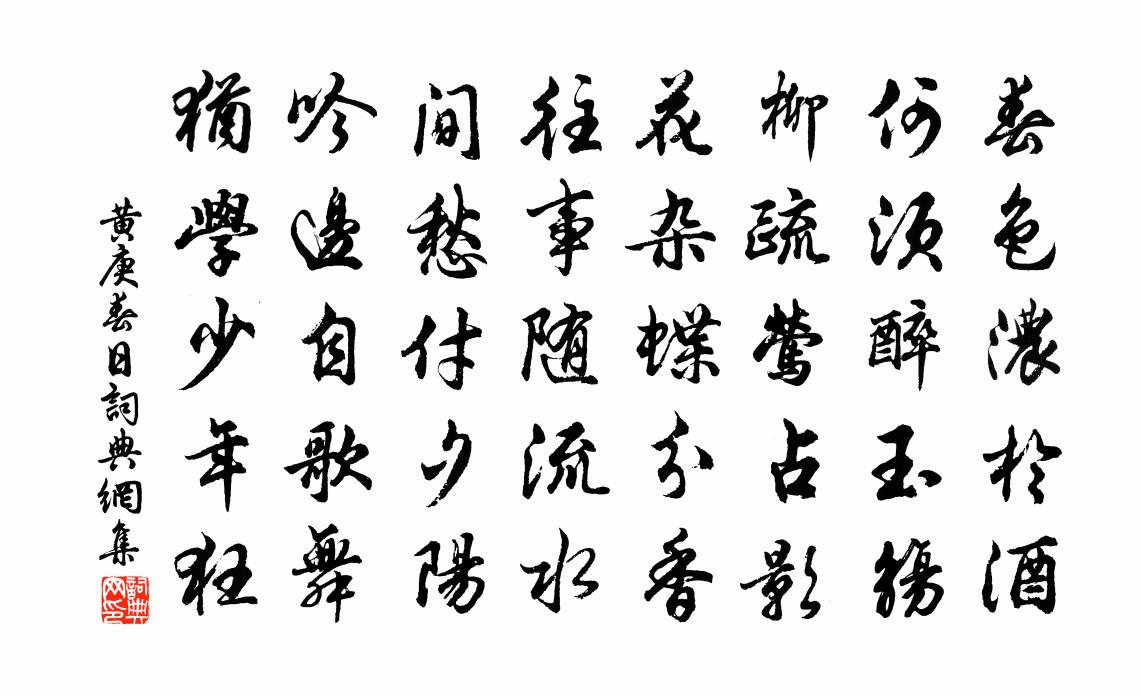 春色濃於酒
何須醉玉觴
柳疏鶯占影
花杂蝶分香
往事随流水
间愁付夕陽
吟邊自歌舞
猶學少年狂
黄庚春日詞典網集
詞典网印